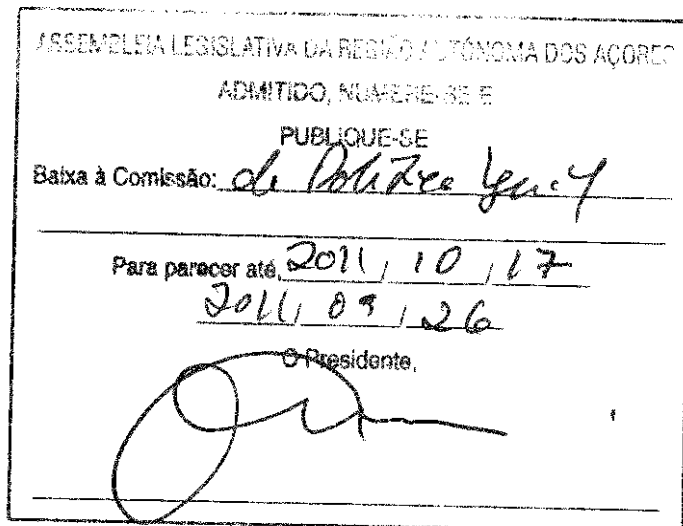 ASSEMBLEIA LEGISLATIVA DA REGIÃO AUTÓNOMA DOS AÇORES
ADMITIDO, NUMERE-SE E
PUBLIQUE-SE
Baixa à Comissão: de Política Geral
Para parecer até, 2011, 10, 17
2011, 09, 26
O Presidente,